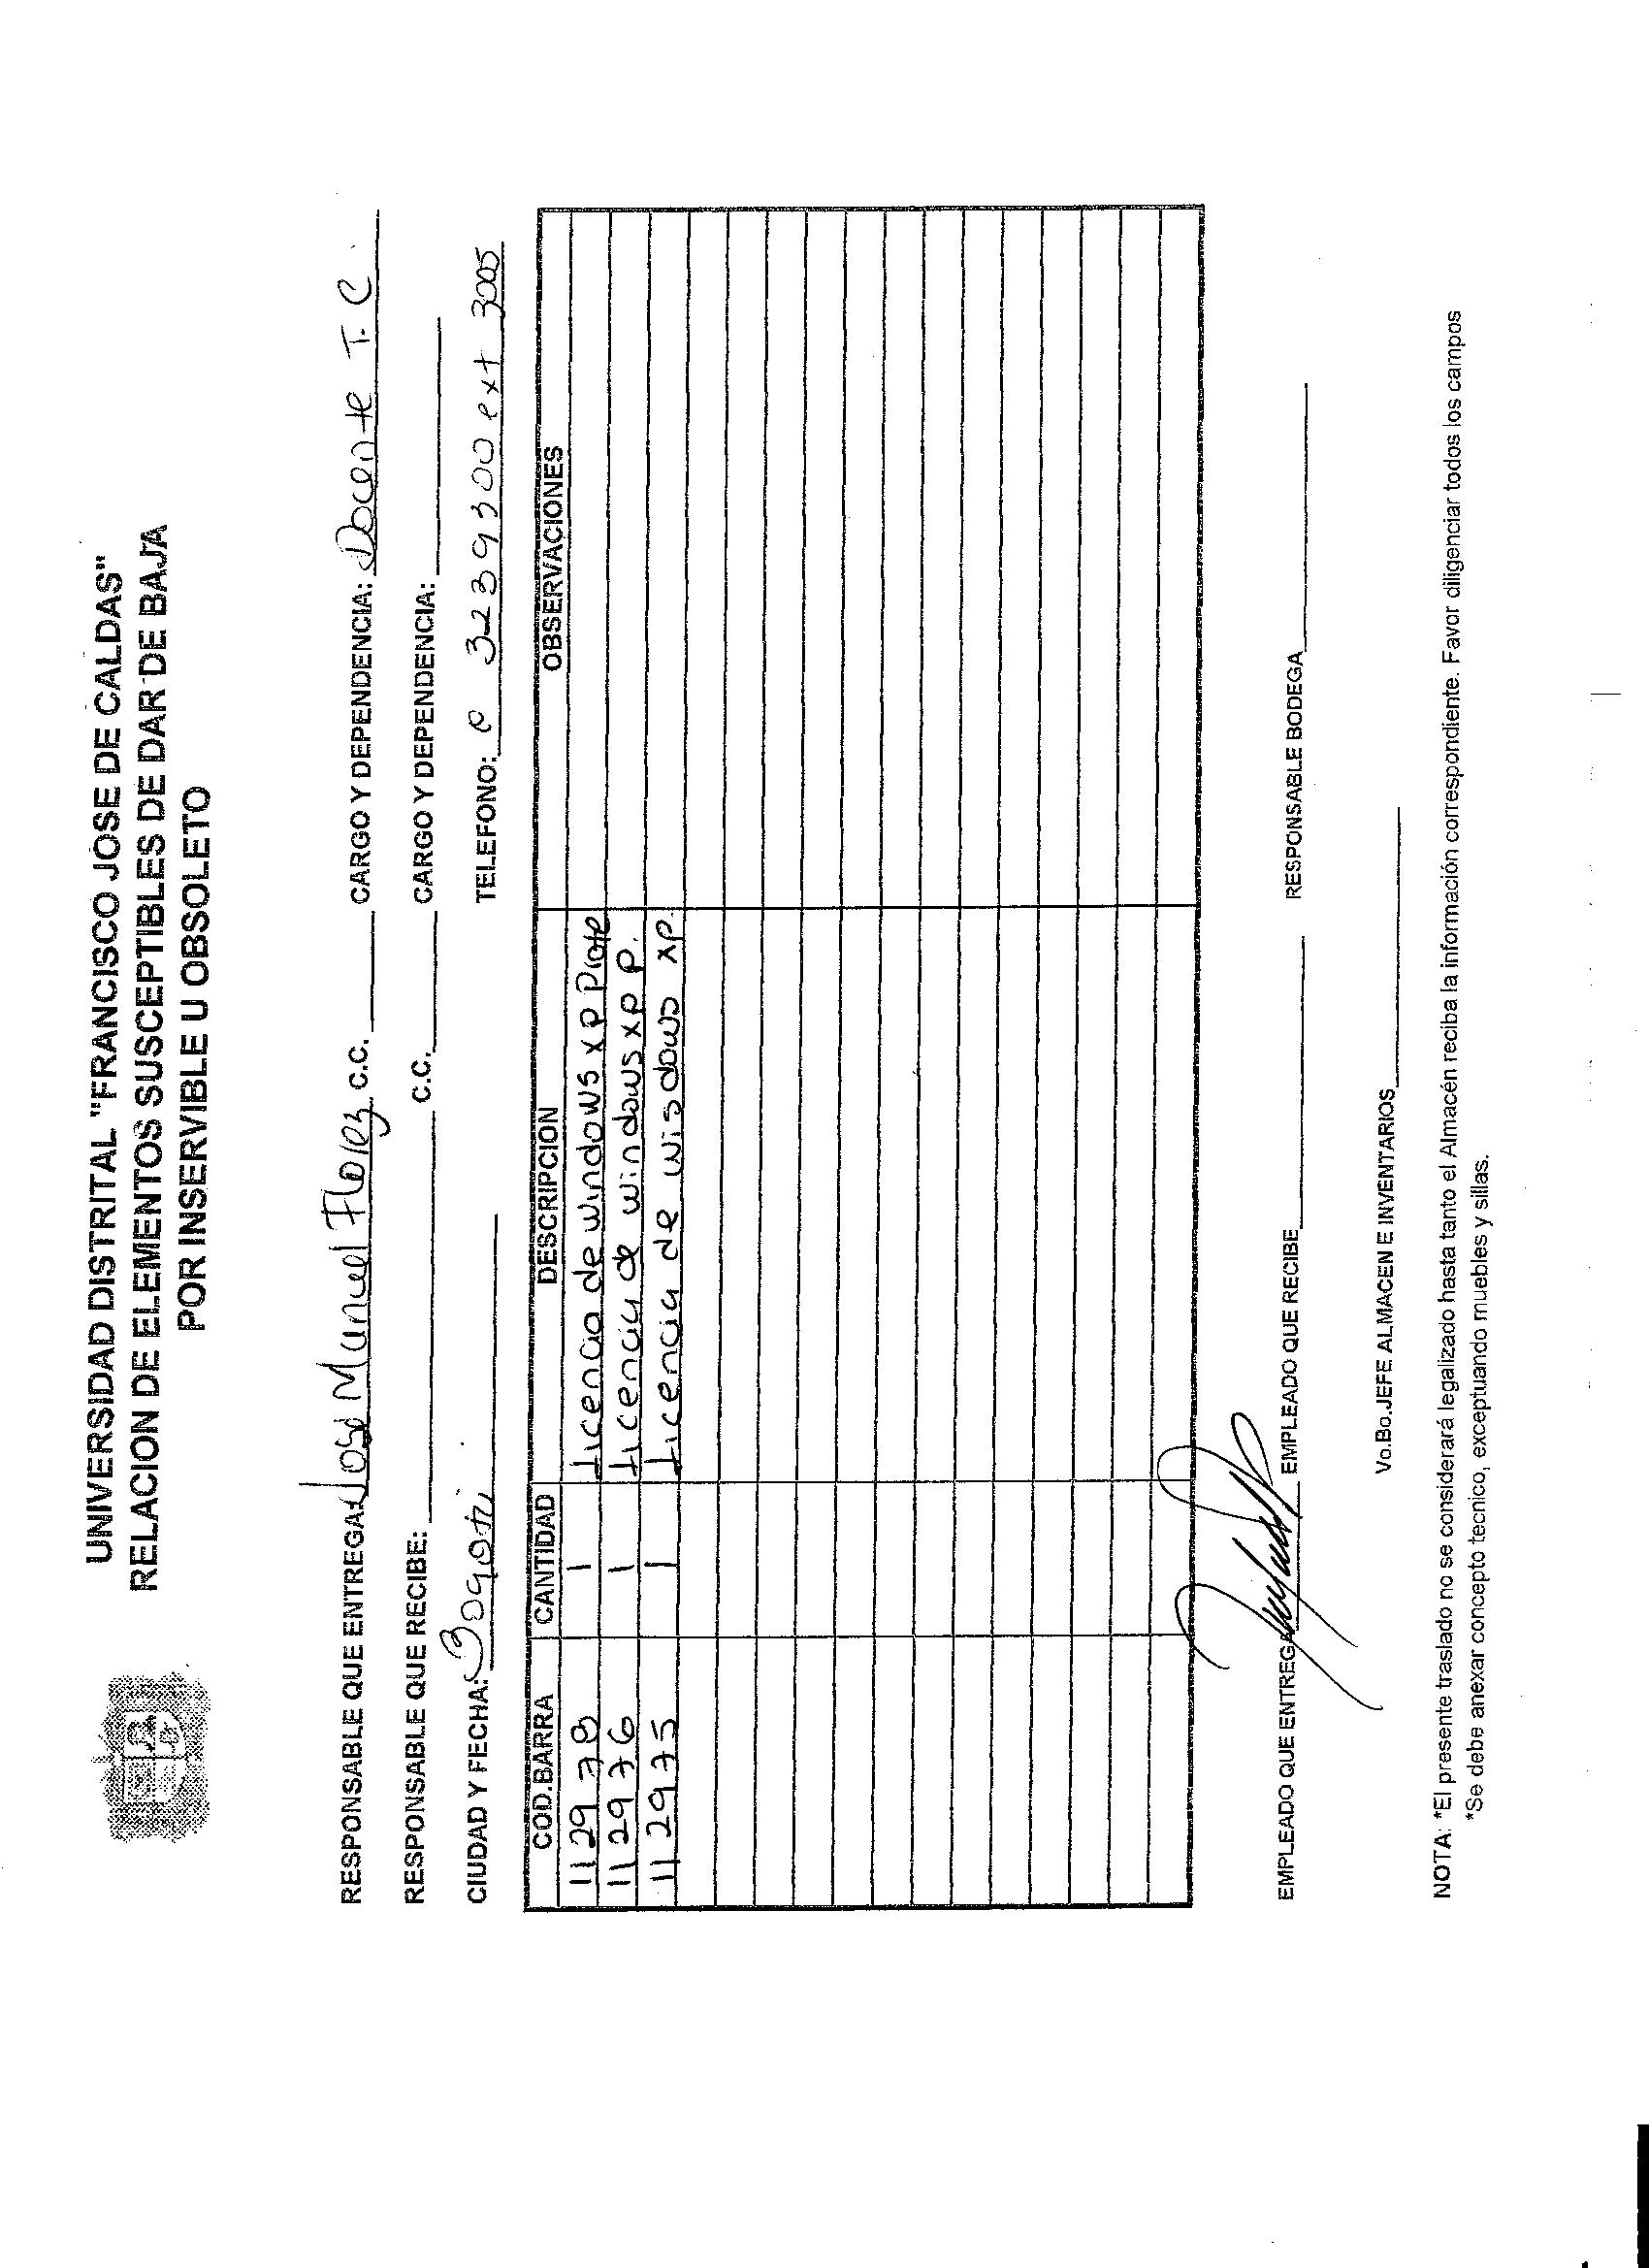 UNIVERSIDAD DISTRITAL "FRANCISCO JOSE DE CALDAS"
RELACION DE ELEMENTOS SUSCEPTIBLES DE DAR DE BAJA
POR INSERVIBLE U OBSOLETO
RESPONSABLE QUE ENTREGA: Jose Manuel Florez C.C. CARGO Y DEPENDENCIA: Docente T.C.
RESPONSABLE QUE RECIBE: C.C. CARGO Y DEPENDENCIA:
CIUDAD Y FECHA: Bogota TELEFONO: 3239300 ext 3005
COD.BARRA CANTIDAD DESCRIPCION OBSERVACIONES
112978 1 Licencia de windows xp Profe
112976 1 Licencia de windows xp P.
112975 1 Licencia de wisdows xp
EMPLEADO QUE ENTREGA EMPLEADO QUE RECIBE RESPONSABLE BODEGA
Vo.Bo.JEFE ALMACEN E INVENTARIOS
NOTA: *El presente traslado no se considerará legalizado hasta tanto el Almacén reciba la información correspondiente. Favor diligenciar todos los campos
*Se debe anexar concepto tecnico, exceptuando muebles y sillas.